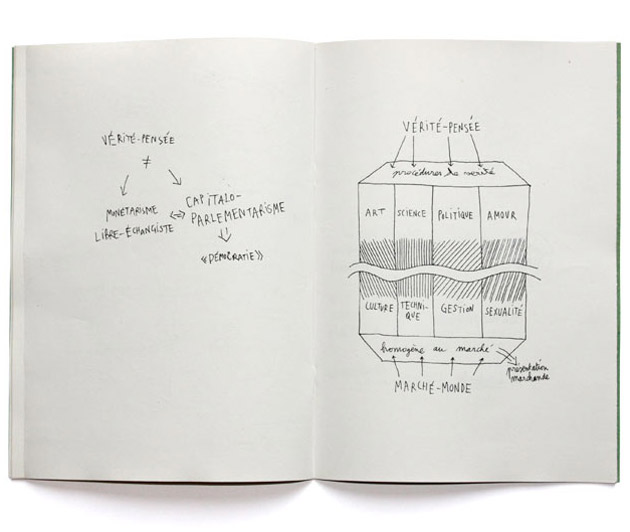 VÉRITÉ-PENSÉE
≠
MONÉTARISME
LIBRE-ÉCHANGISTE
CAPITALO-
PARLEMENTARISME
«DÉMOCRATIE»
VÉRITÉ-PENSÉE
procédures de vérité
ART SCIENCE POLITIQUE AMOUR
CULTURE TECHNI-
QUE GESTION SEXUALITÉ
homogène au marché
présentation
marchande
MARCHÉ-MONDE